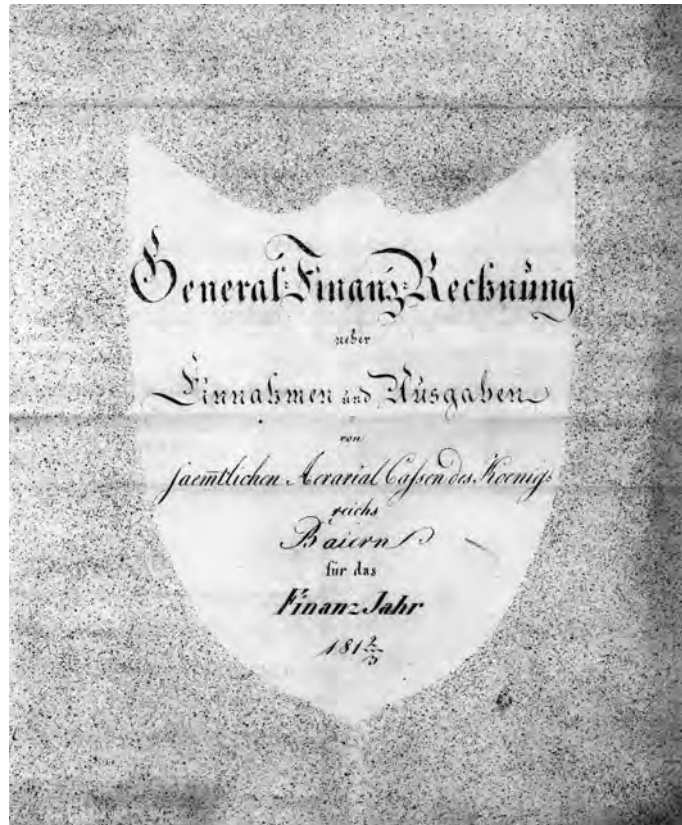 General-Finanz-Rechnung
ueber
Einnahmen und Ausgaben
von
saem̅tlichen Aerarial Cassen des Koenig-
reichs
Baiern
für das
Finanz Jahr
181 2/3